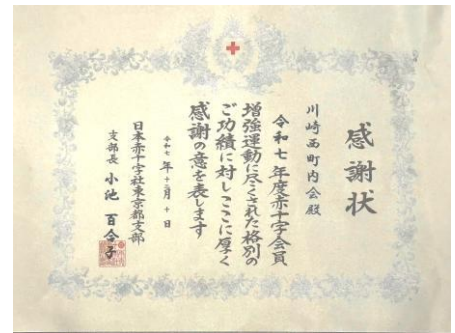 感謝状
川崎西町内会殿
令和七年度赤十字会員
増強運動に尽くされた格別の
ご功績に対しここに厚く
感謝の意を表します
令和七年十二月十日
日本赤十字社東京都支部
支部長 小池百合子